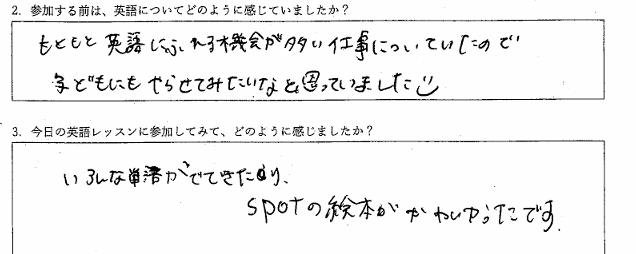 2. 参加する前は、英語についてどのように感じていましたか？
もともと英語にふれる機会が多い仕事についていたので
子どもにもやらせてみたいなと思っていました
3. 今日の英語レッスンに参加してみて、どのように感じましたか？
いろんな単語がでてきたり、
spotの絵本がかわいかったです。